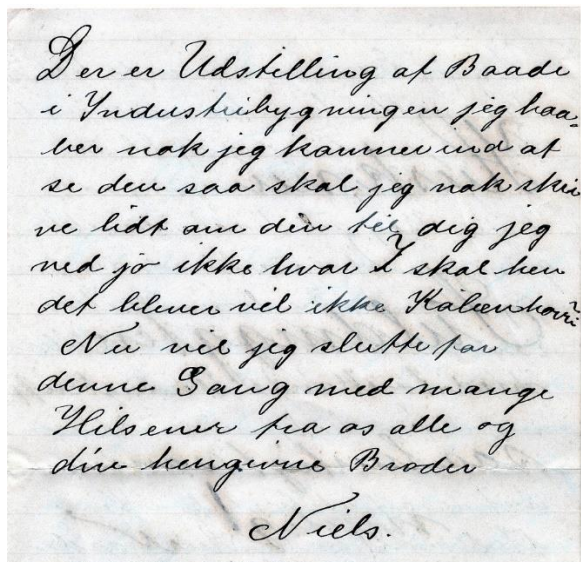 Der er Udstilling af Baade
i Industribygningen jeg haa-
ber nok jeg kommer ind at
se den saa skal jeg nok skri
ve lidt om den til dig jeg
ved jo ikke hvor I skal hen
det bliver vel ikke Københavni?
Nu vil jeg slutte for
denne Gang med mange
Hilsener fra os alle og
din hengivne Broder
Niels.